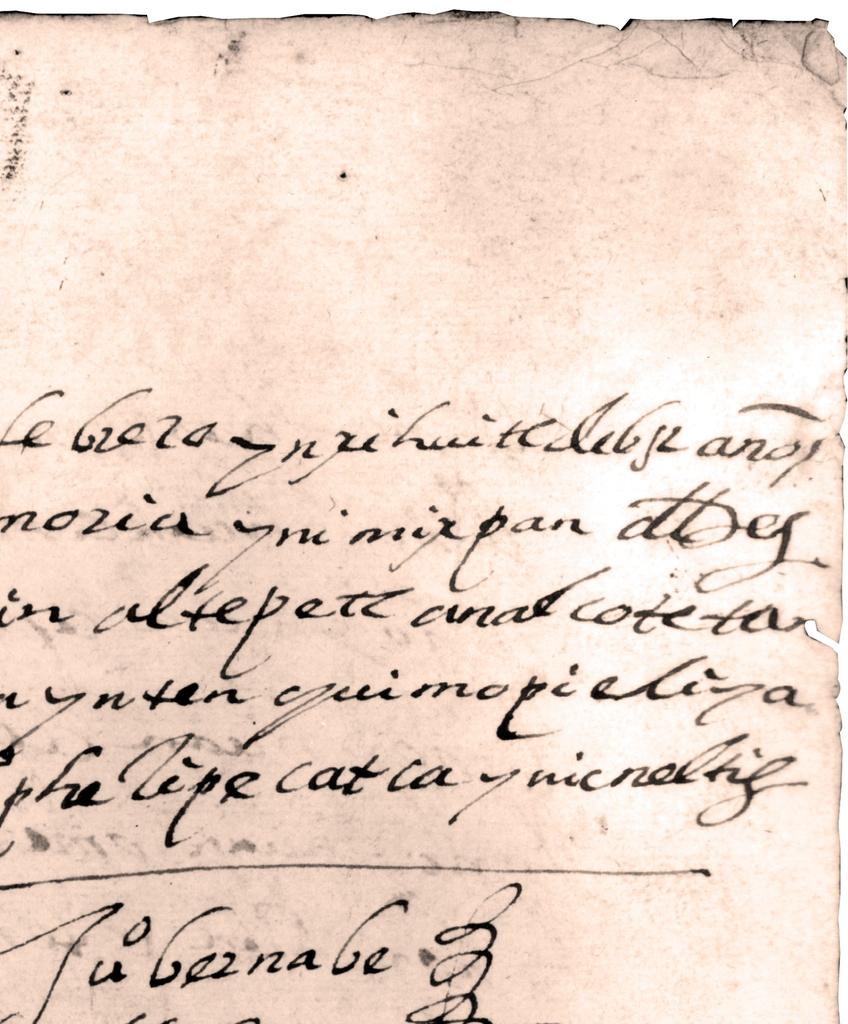 febrero yn xihuitl de años
moria yn imixpan alldes
in altepetl analcotetan
ynten quimopieliya
phelipe catca ynic neltiz
juº bernabe